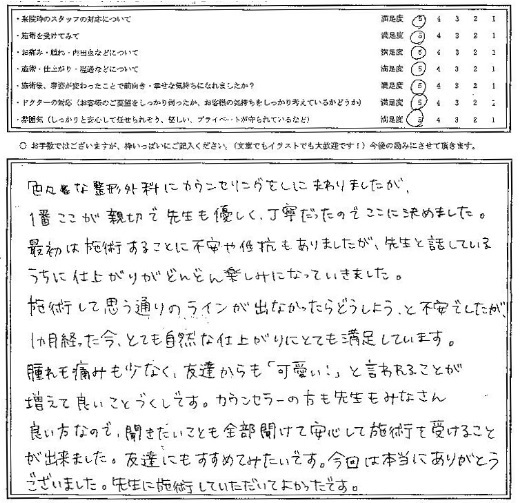 ・来院時のスタッフの対応について 満足度 5 4 3 2 1
・施術を受けてみて 満足度 5 4 3 2 1
・お痛み・腫れ・内出血などについて 満足度 5 4 3 2 1
・施術・仕上がり・経過などについて 満足度 5 4 3 2 1
・施術後、容姿が変わったことで前向き・幸せな気持ちになれましたか？ 満足度 5 4 3 2 1
・ドクターの対応（お客様のご要望をしっかり伺ったか、お客様の気持ちをしっかり考えているかどうか） 満足度 5 4 3 2 1
・雰囲気（しっかりと安心して任せられそう、優しい、プライベートが守られているなど） 満足度 5 4 3 2 1
○ お手数ではございますが、枠いっぱいにご記入ください。（文章でもイラストでも大歓迎です！）今後の励みにさせて頂きます。
色々な整形外科にカウンセリングをしにまわりましたが、
1番ここが親切で先生も優しく、丁寧だったのでここに決めました。
最初は施術することに不安や低抗もありましたが、先生と話している
うちに仕上がりがどんどん楽しみになっていきました。
施術して思う通りのラインが出なかったらどうしよう、と不安でしたが、
1ヵ月経った今、とても自然な仕上がりにとても満足しています。
腫れも痛みも少なく、友達からも「可愛い！」と言われることが
増えて良いことづくしです。カウンセラーの方も先生もみなさん
良い方なので、聞きたいことも全部聞けて安心して施術を受けること
が出来ました。友達にもすすめてみたいです。今回は本当にありがとう
ございました。先生に施術していただいてよかったです。